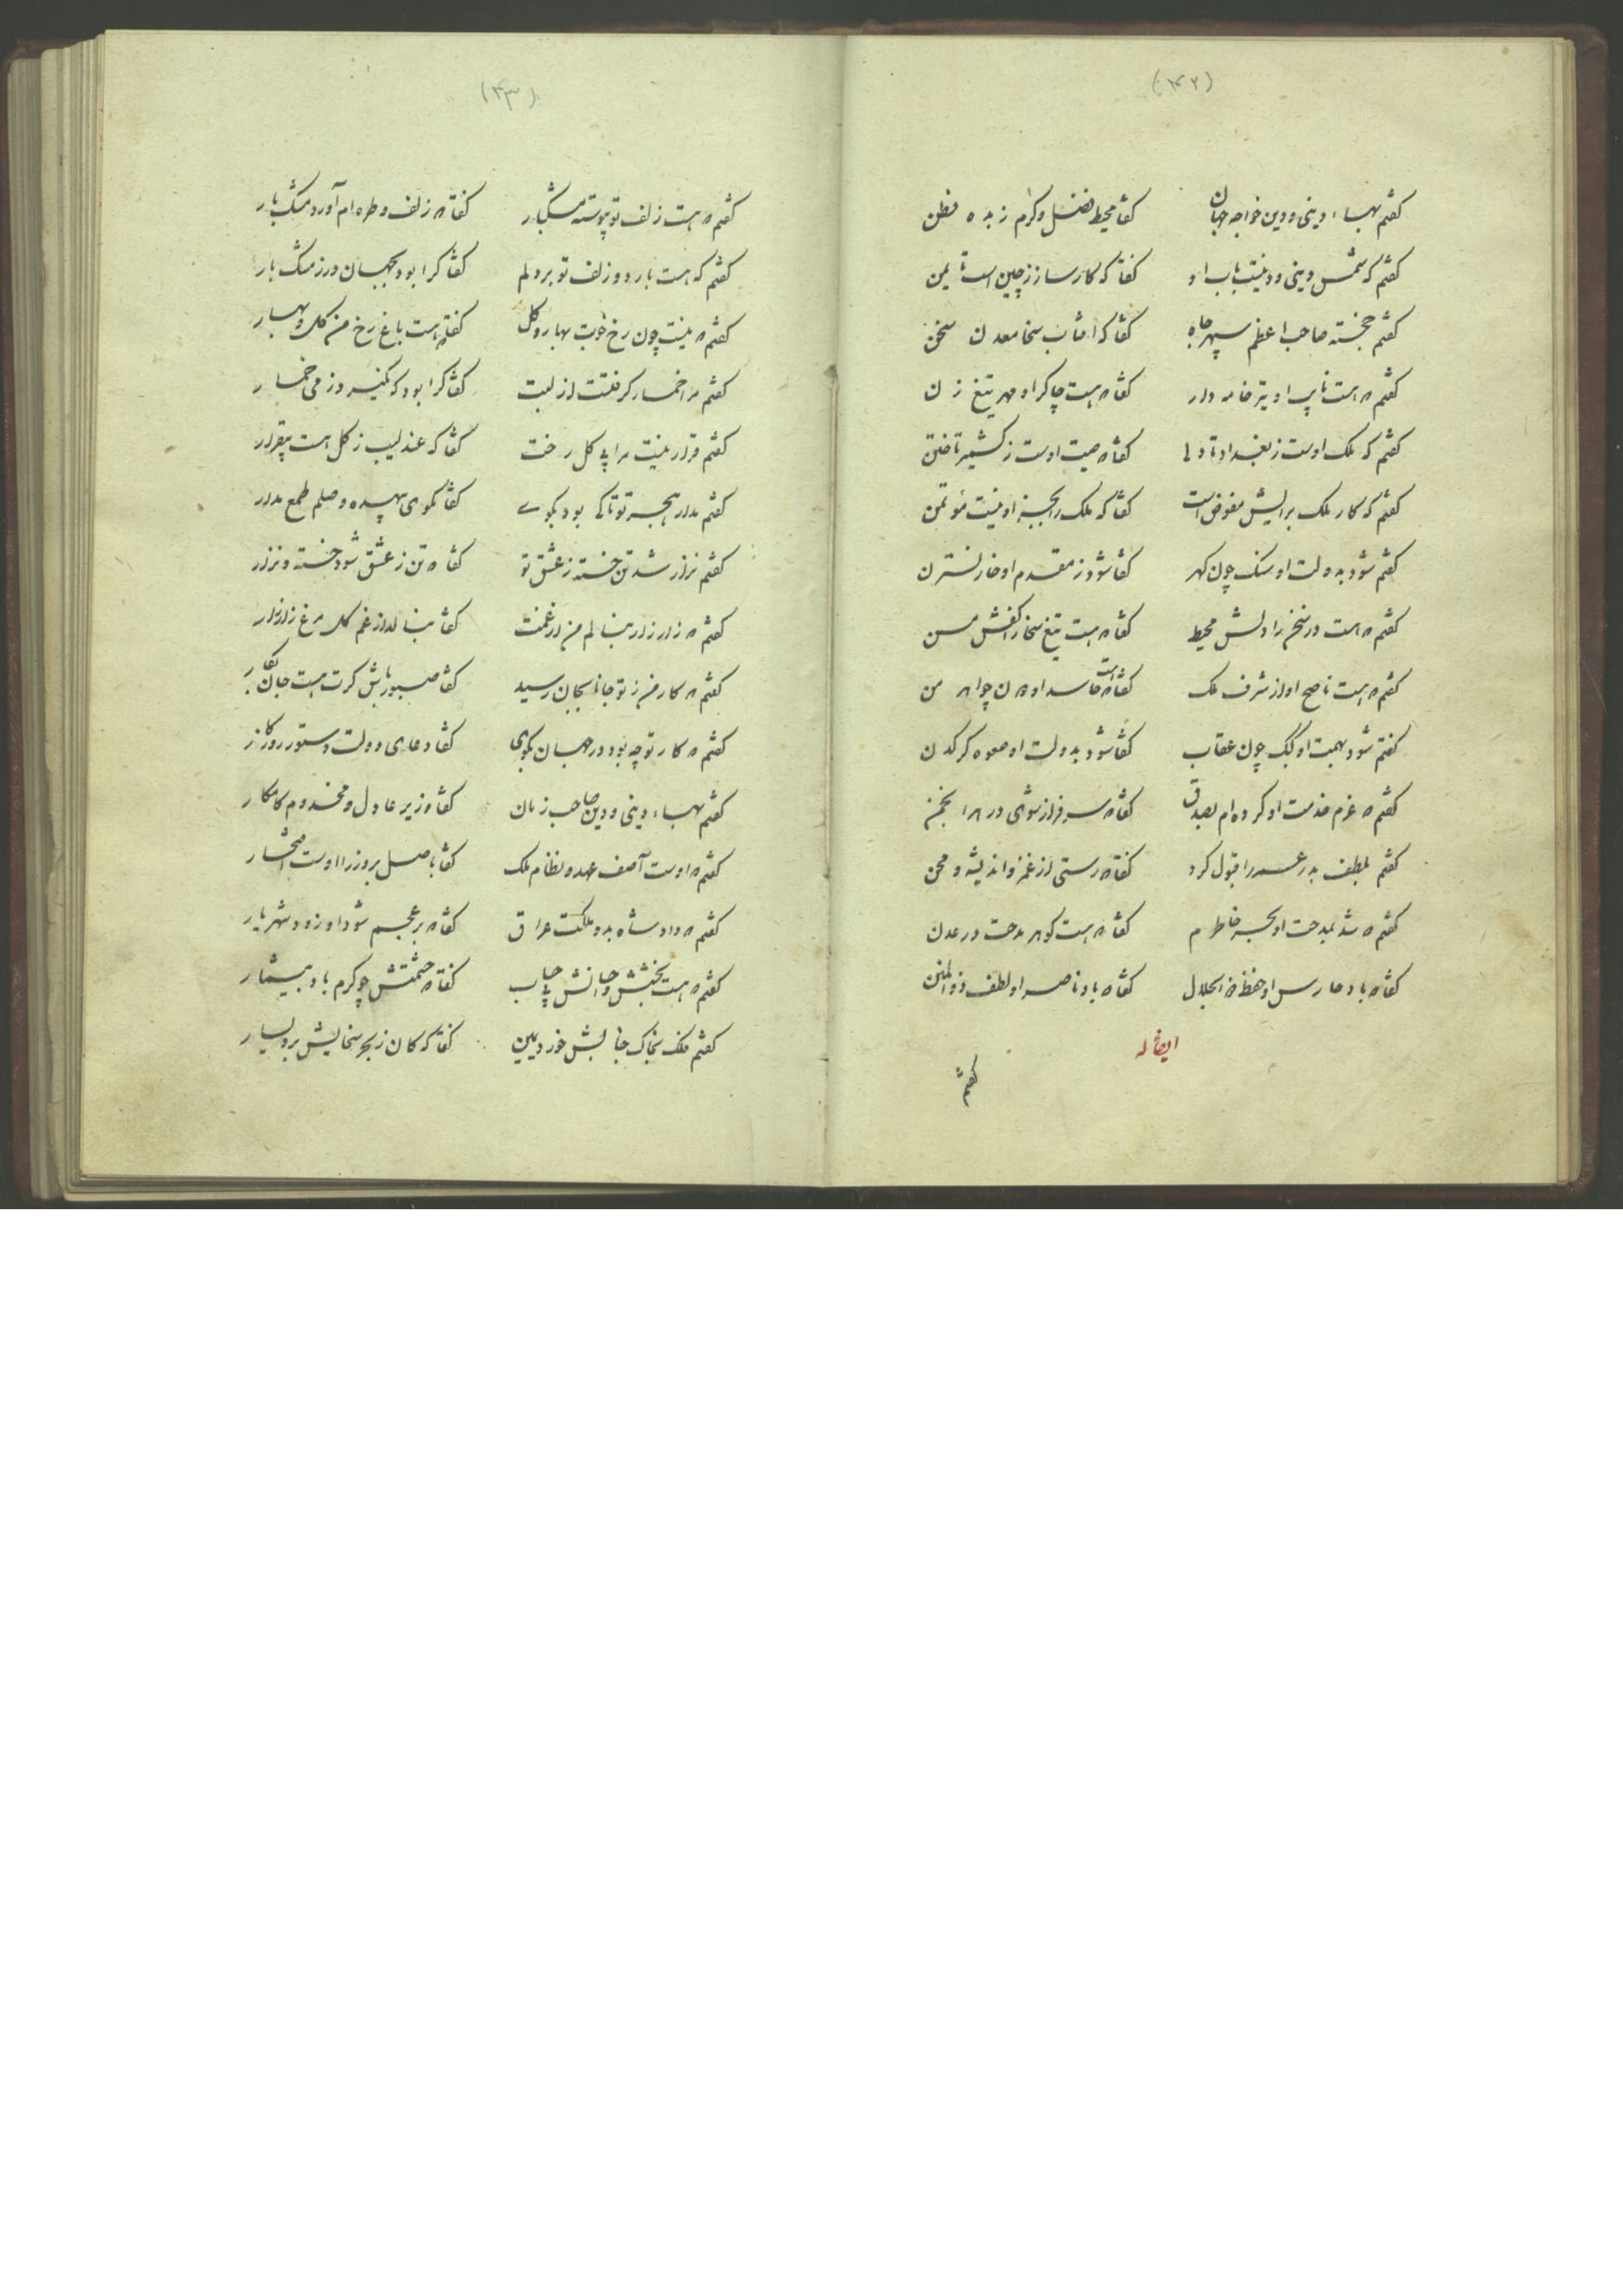 (۴۲)
گفتم بهاء دینی و دین خواجه جهان گفتا محیط فضل و کرم زبده فطن
گفتم که شمس دینی و دینست باب او گفتا که کارساز ز چین است تا یمن
گفتم خجسته صاحب اعظم سپهر جاه گفتا که آفتاب سخا معدن سخن
گفتم که هست نایب او تیر خامه دار گفتا که هست چاکر او مهر تیغ زن
گفتم که ملک اوست ز بغداد تا گفتا که صیت اوست ز کشمیر تا ختن
گفتم که کار ملک برایش مفوض است گفتا که ملک را بجز او نیست مؤتمن
گفتم شود بدولت او سنک چون کهر گفتا شود ز مقدم او خار نسترن
گفتم که هست در سخن را دلش محیط گفتا که هست تیغ سخا را کفش مسن
گفتم که هست ناصح او از شرف ملک گفتا که هست حاسد او
گفتم شود بهمت او کبک چون عقاب گفتا شود بدولت او صعوه کرکدن
گفتم که عزم خدمت او کرده‌ام بصدق گفتا که سرفراز شوی در انجمن
گفتم بلطف را قبول کرد گفتا که رستی از غم و اندیشه و محن
گفتم که شد بمدحت او بحر خاطرم گفتا که هست کوهر مدحت در عدن
گفتا که باد حارس او حفظ ذو الجلال گفتا که باد ناصر او لطف ذو المنن
ایضا له
گفتم
(۴۳)
گفتم که هست زلف تو پیوسته مشکبار گفتا که زلف و طره‌ام آورد مشک بار
گفتم که هست بار دو زلف تو بر دلم گفتا کرا بود بجهان درز مشک بار
گفتم که نیست چون رخ خوبت بهار و کل گفتا که هست باغ رخ من کل و بهار
گفتم مرا خمار کرفتست از لبت گفتا کرا بود که نکیرد ز می خمار
گفتم قرار نیست مرا بی کل رخت گفتا که عندلیب ز کل هست بیقرار
گفتم مدار هجر تو تا کی بود بکوی گفتا مکوی بیهده وصلم طمع مدار
گفتم نزار شد تن خسته ز عشق تو گفتا که تن ز عشق شود خسته و نزار
گفتم که زار زار بنالم من از غمت گفتا بنالد از غم کل مرغ زار زار
گفتم که کار من ز تو جانا بجان رسید گفتا صبور باش کرت هست جان بکار
گفتم که کار تو چه بود در جهان بکوی گفتا دعای دولت دستور روزکار
گفتم بهاء دینی و دین صاحب زمان گفتا وزیر عادل و مخدوم کامکار
گفتم که اوست آصف عهد و نظام ملک گفتا باصل بر وزرا اوست افتخار
گفتم که داد شاه بدو ملکت عراق گفتا که بر عجم شود او زود شهریار
گفتم که هست بخشش گفتا که حشمتش چو کرم باد بیشمار
گفتم فلک بخاک جنابش خورد یمین گفتا که کان ز بحر سخایش برد یسار